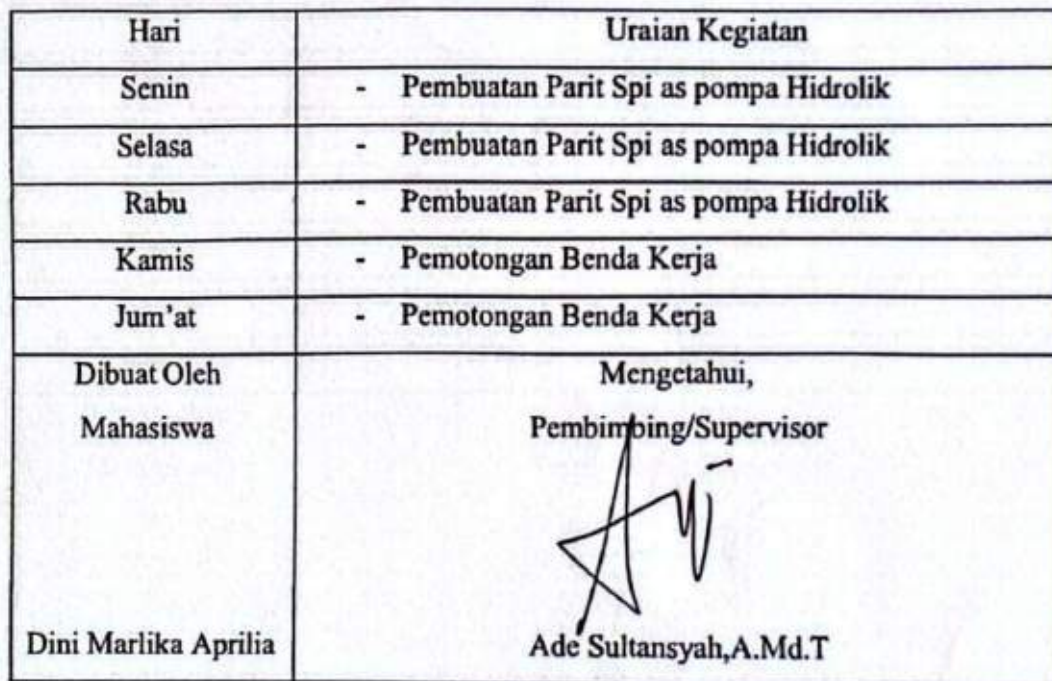 Hari Uraian Kegiatan
Senin - Pembuatan Parit Spi as pompa Hidrolik
Selasa - Pembuatan Parit Spi as pompa Hidrolik
Rabu - Pembuatan Parit Spi as pompa Hidrolik
Kamis - Pemotongan Benda Kerja
Jum'at - Pemotongan Benda Kerja
Dibuat Oleh Mengetahui,
Mahasiswa Pembimbing/Supervisor
Dini Marlika Aprilia Ade Sultansyah,A.Md.T